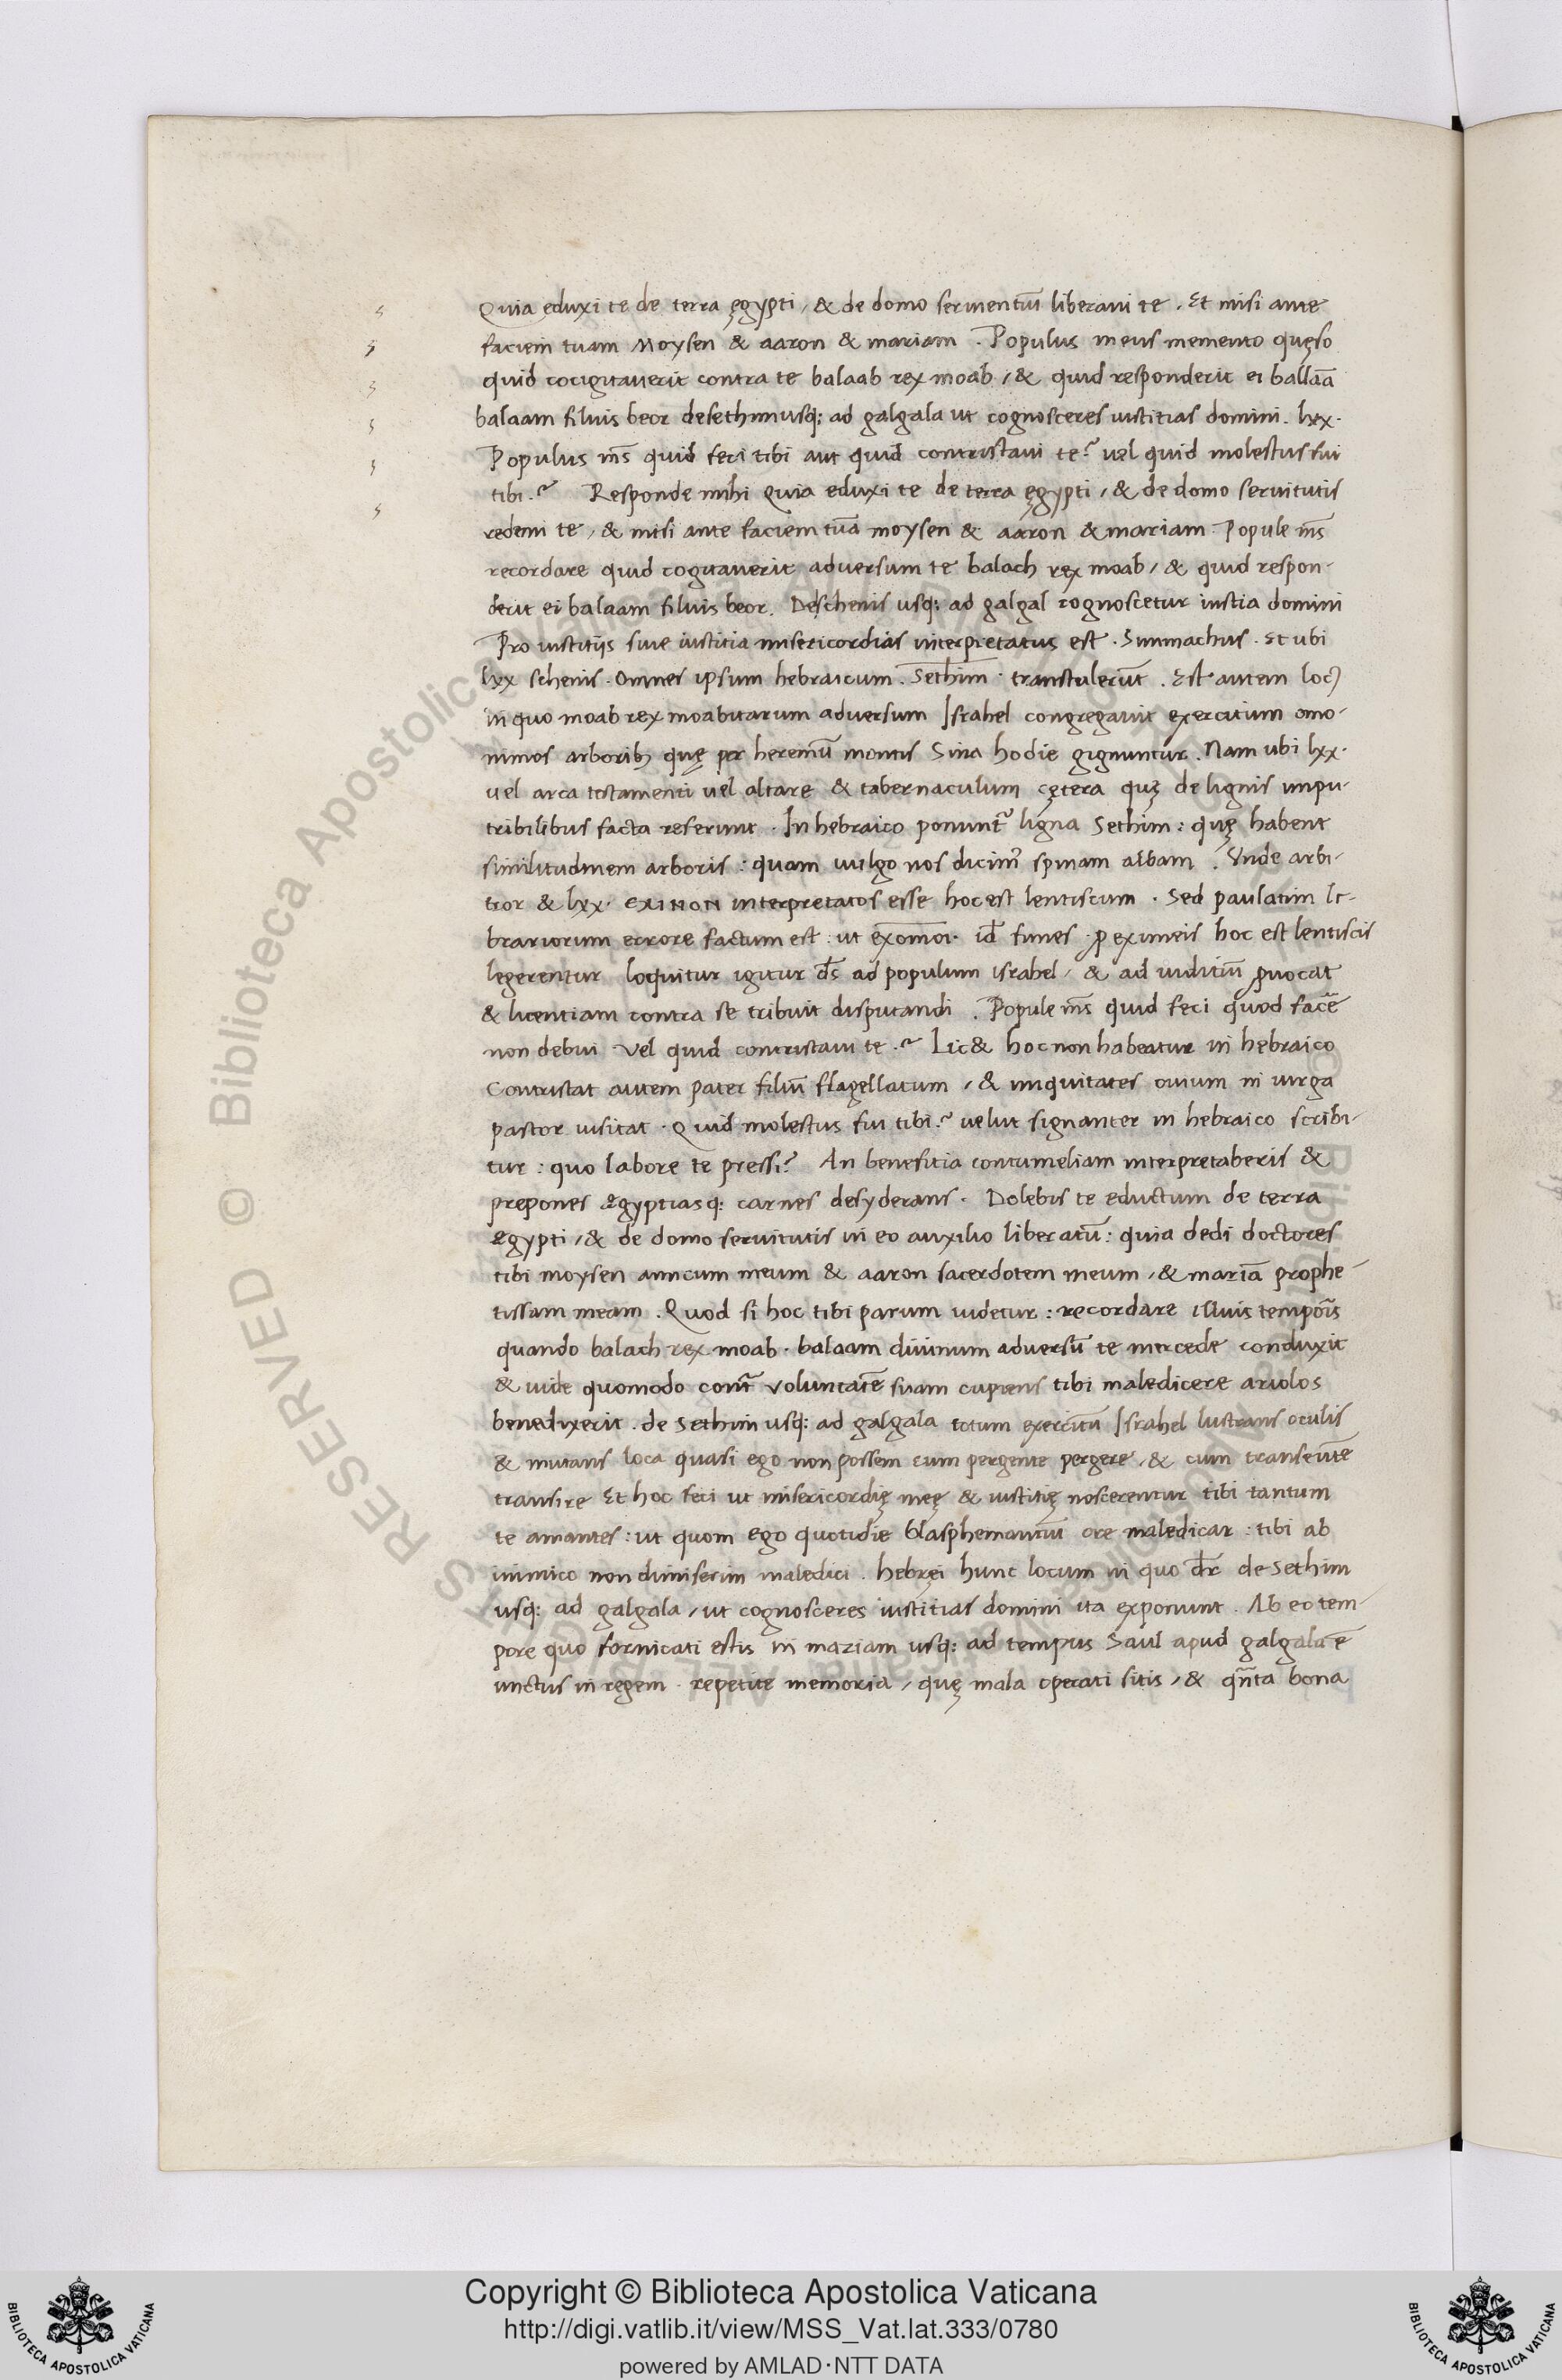 Quia eduxi te de terra ęgypti / & de domo seruientiũ liberaui te . Et misi ante
faciem tuam Moysen & aaron & mariam . Populus meus memento quęso
quid cocigitauerit contra te balaab rex moab / & quid responderit ei ballaã
balaam filuis beor de sethim usq; ad galgala ut cognosceres iustitias domini . lxx .
Populus m̃s quid feci tibi aut quid contristaui te ? uel quid molestus fui
tibi . ? Responde mihi Quia eduxi te de terra ęgypti / & de domo seruitutis
redemi te / & misi ante faciem tuã moysen & aaron & mariam . Popule m̃s
recordare quid cogitauerit aduersum te balach rex moab / & quid respon-
derit ei balaam filuis beor . De schenis usq; ad galgal cognoscetur iustia domini
Pro iustitijs siue iustitia misericordias interpretatus est . Simmachus . Et ubi
lxx schenis . Omnes ipsum hebraicum . Sethim . transtulerũt . Est autem locꝰ
in quo moab rex moabitarum aduersum Israhel congregauit exercitum omo-
nimos arboribꝫ quę per heremũ montis Sina hodie gignuntur . Nam ubi lxx .
uel arca testamenti uel altare & tabernaculum cętera quę de lignis impu-
tribilibus facta referunt . In hebraico ponunt᷑ ligna Sethim : quę habent
similitudinem arboris : quam uulgo nos dicimꝰ spinam albam . Vnde arbi-
tror & lxx . exinon interpretatos esse hoc est lentiscum . Sed paulatim li-
brariorum errore factum est : ut exomoi . id̃ funes . ꝓ eximeis hoc est lentiscis
legerentur loquitur igitur d̃s ad populum israhel / & ad iuditiũ ꝓuocat
& licentiam contra se tribuit disputandi . Popule m̃s quid feci quod facẽ
non debui Vel quid contristaui te . ? Lic& hoc non habeatur in hebraico
Contristat autem pater filiũ flagellatum / & iniquitates ouium in uirga
pastor uisitat . Quid molestus fui tibi . ? uelut signanter in hebraico scribi-
tur : quo labore te pressi ? An benefitia contumeliam interpretaberis &
prepones ęgyptiasq; carnes desyderans . Dolebis te eductum de terra
ęgypti / & de domo seruitutis in eo auxilio liberatũ : quia dedi doctores
tibi moysen amicum meum & aaron sacerdotem meum / & mariã prophe-
tissam meam . Quod si hoc tibi parum uidetur : recordare illuis tempor̃is
quando balach rex moab . balaam diuinum aduersũ te mercede conduxit
& uide quomodo cont᷑ voluntatẽ suam cupiens tibi maledicere ariolos
benedixerit . de Sethim usq; ad galgala totum exercitũ Israhel lustrans oculis
& mutans loca quasi ego non possem cum pergente pergere / & cum transeũte
transire Et hoc feci ut misericordię meę & iustitię noscerentur tibi tantum
te amantes : ut quom ego quotidie blasphemantiũ ore maledicar : tibi ab
inimico non dimiserim maledici . hebręi hunc locum in quo dr̃ de Sethim
usq; ad galgala / ut cognosceres iustitias domini ita exponunt . Ab eo tem-
pore quo fornicati estis in maziam usq; ad tempus Saul apud galgala ẽ
unctus in regem . repetite memoria / quę mala operati sitis / & qñta bona
Copyright © Biblioteca Apostolica Vaticana
http://digi.vatlib.it/view/MSS_Vat.lat.333/0780
powered by AMLAD·NTT DATA